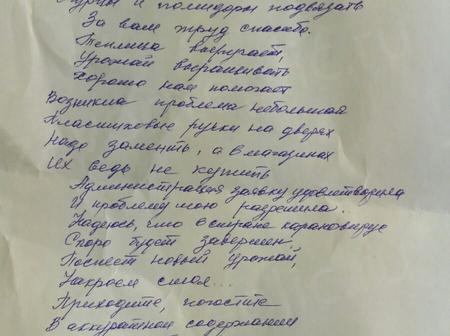 и помидоры подвязать
За вам труд спасибо.
Теплица выручает,
Урожай выращивать
Хорошо нам помогает
Возникла проблема небольшая
Пластиковые ручки на дверях
Надо заменить, а в магазинах
Их ведь не купить
Администрация заявку удовлетворила
И проблему мою разрешила.
Надеюсь, что в стране карановирус
Скоро будет завершен,
Поспеет новый урожай,
Накроем стол...
Приходите, погостите
В аккуратном содержании